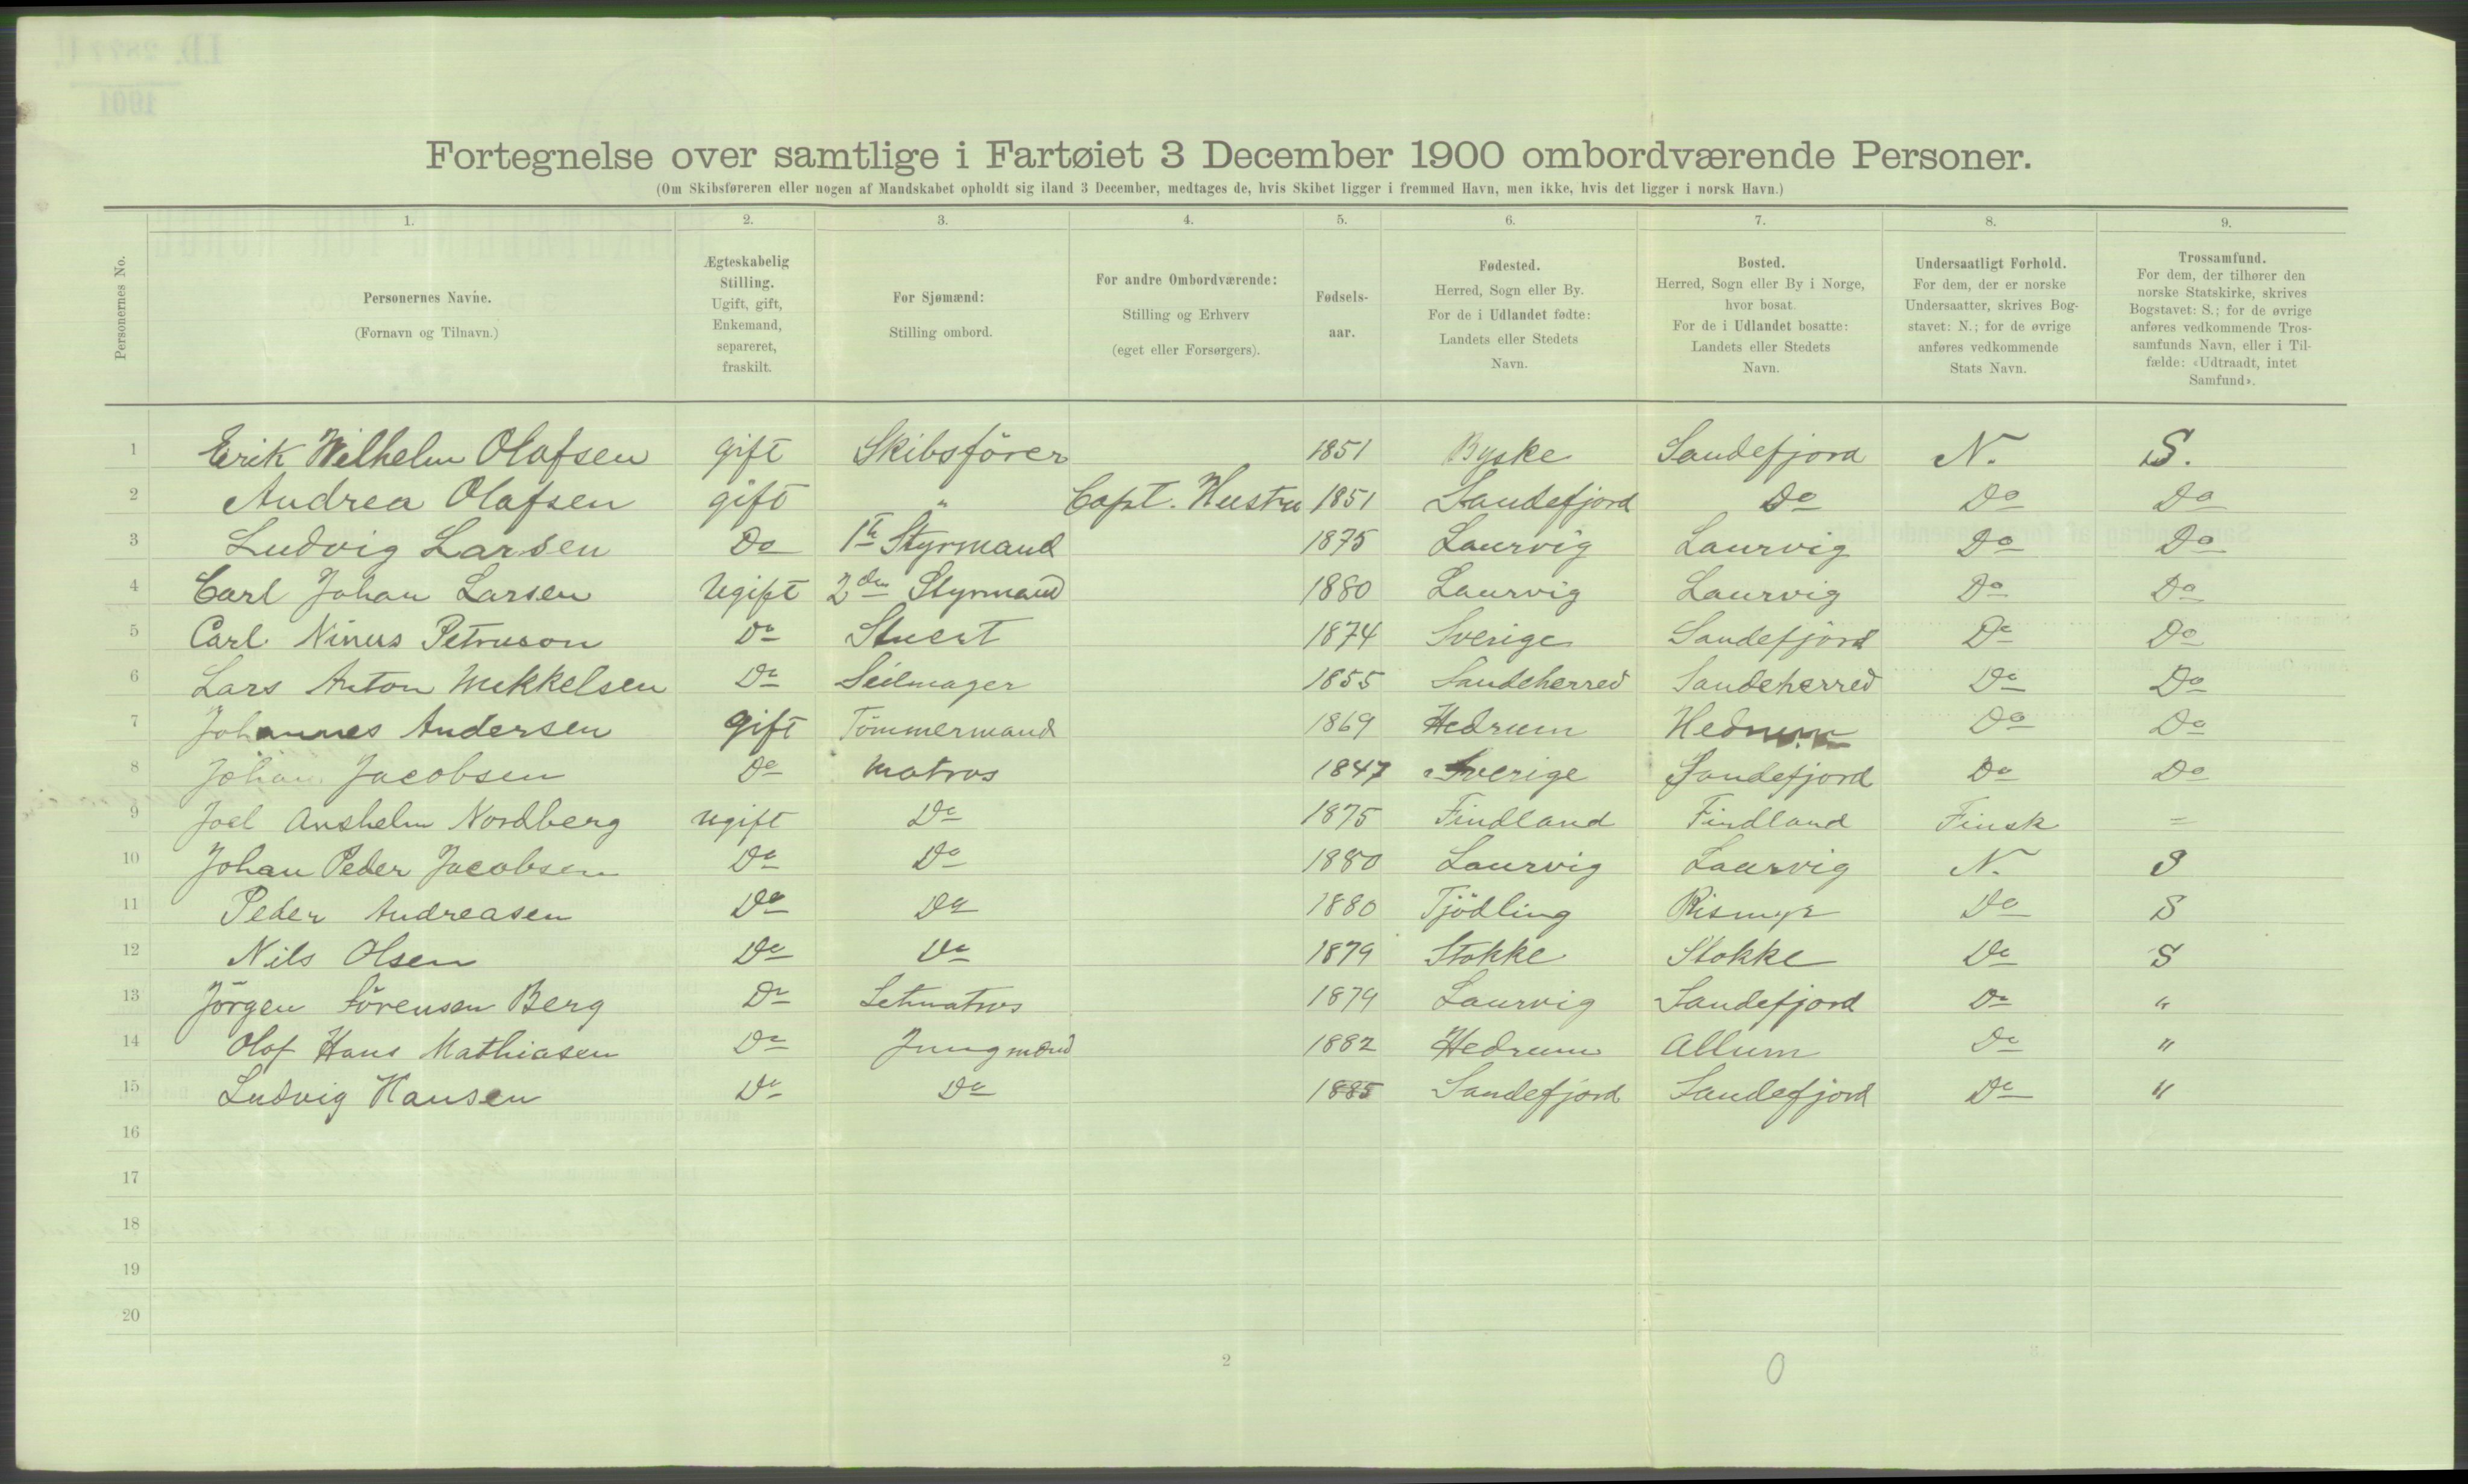 Fortegnelse over samtlige i Fartøiet 3 December 1900 ombordværende Personer.
(Om Skibsføreren eller nogen af Mandskabet opholdt sig iland 3 December, medtages de, hvis Skibet ligger i fremmed Havn, men ikke, hvis det ligger i norsk Havn.)
1. 2. 3. 4. 5. 6. 7. 8. 9.
Personernes No.
Personernes Navne.
(Fornavn og Tilnavn.)
Ægteskabelig
Stilling.
Ugift, gift,
Enkemand,
separeret,
fraskilt.
For Sjømænd:
Stilling ombord.
For andre Ombordværende:
Stilling og Erhverv
(eget eller Forsørgers).
Fødsels-
aar.
Fødested.
Herred, Sogn eller By.
For de i Udlandet fødte:
Landets eller Stedets
Navn.
Bosted.
Herred, Sogn eller By i Norge,
hvor bosat.
For de i Udlandet bosatte:
Landets eller Stedets
Navn.
Undersaatligt Forhold.
For dem, der er norske
Undersaatter, skrives Bog-
stavet: N.; for de øvrige
anføres vedkommende
Stats Navn.
Trossamfund.
For dem, der tilhører den
norske Statskirke, skrives
Bogstavet: S.; for de øvrige
anføres vedkommende Tros-
samfunds Navn, eller i Til-
fælde: «Udtraadt, intet
Samfund».
1 Erik Wilhelm Olafsen gift Skibsförer 1851 Byske Sandefjord N. S.
2 Andrea Olafsen gift " Capt. Hustru 1851 Sandefjord Do Do Do
3 Ludvig Larsen Do 1te Styrmand 1875 Laurvig Laurvig Do Do
4 Carl Johan Larsen Ugift 2den Styrmand 1880 Laurvig Laurvig Do Do
5 Carl Ninus Do Stuert 1874 Sverige Sandefjord Do Do
6 Lars Anton Mikkelsen Do Seilmager 1855 Sandeherred Sandeherred Do Do
7 Johannes Andersen gift Tömmermand 1869 Hedrum Hedrum Do Do
8 Johan Jacobsen Do Matros 1847 Sverige Sandefjord Do Do
9 Joel Anshelm Nordberg ugift Do 1875 Findland Findland Finsk =
10 Johan Peder Jacobsen Do Do 1880 Laurvig Laurvig N. S
11 Peder Andreasen Do Do 1880 Tjödling Rismyr Do S
12 Nils Olsen Do Do 1879 Stokke Stokke Do S
13 Jörgen Sörensen Berg Do Letmatros 1879 Laurvig Sandefjord Do "
14 Olaf Hans Mathiasen Do Jungmand 1882 Hedrum Allum Do "
15 Ludvig Hansen Do Do 1885 Sandefjord Sandefjord Do "
16
17
18
19
20
2
0